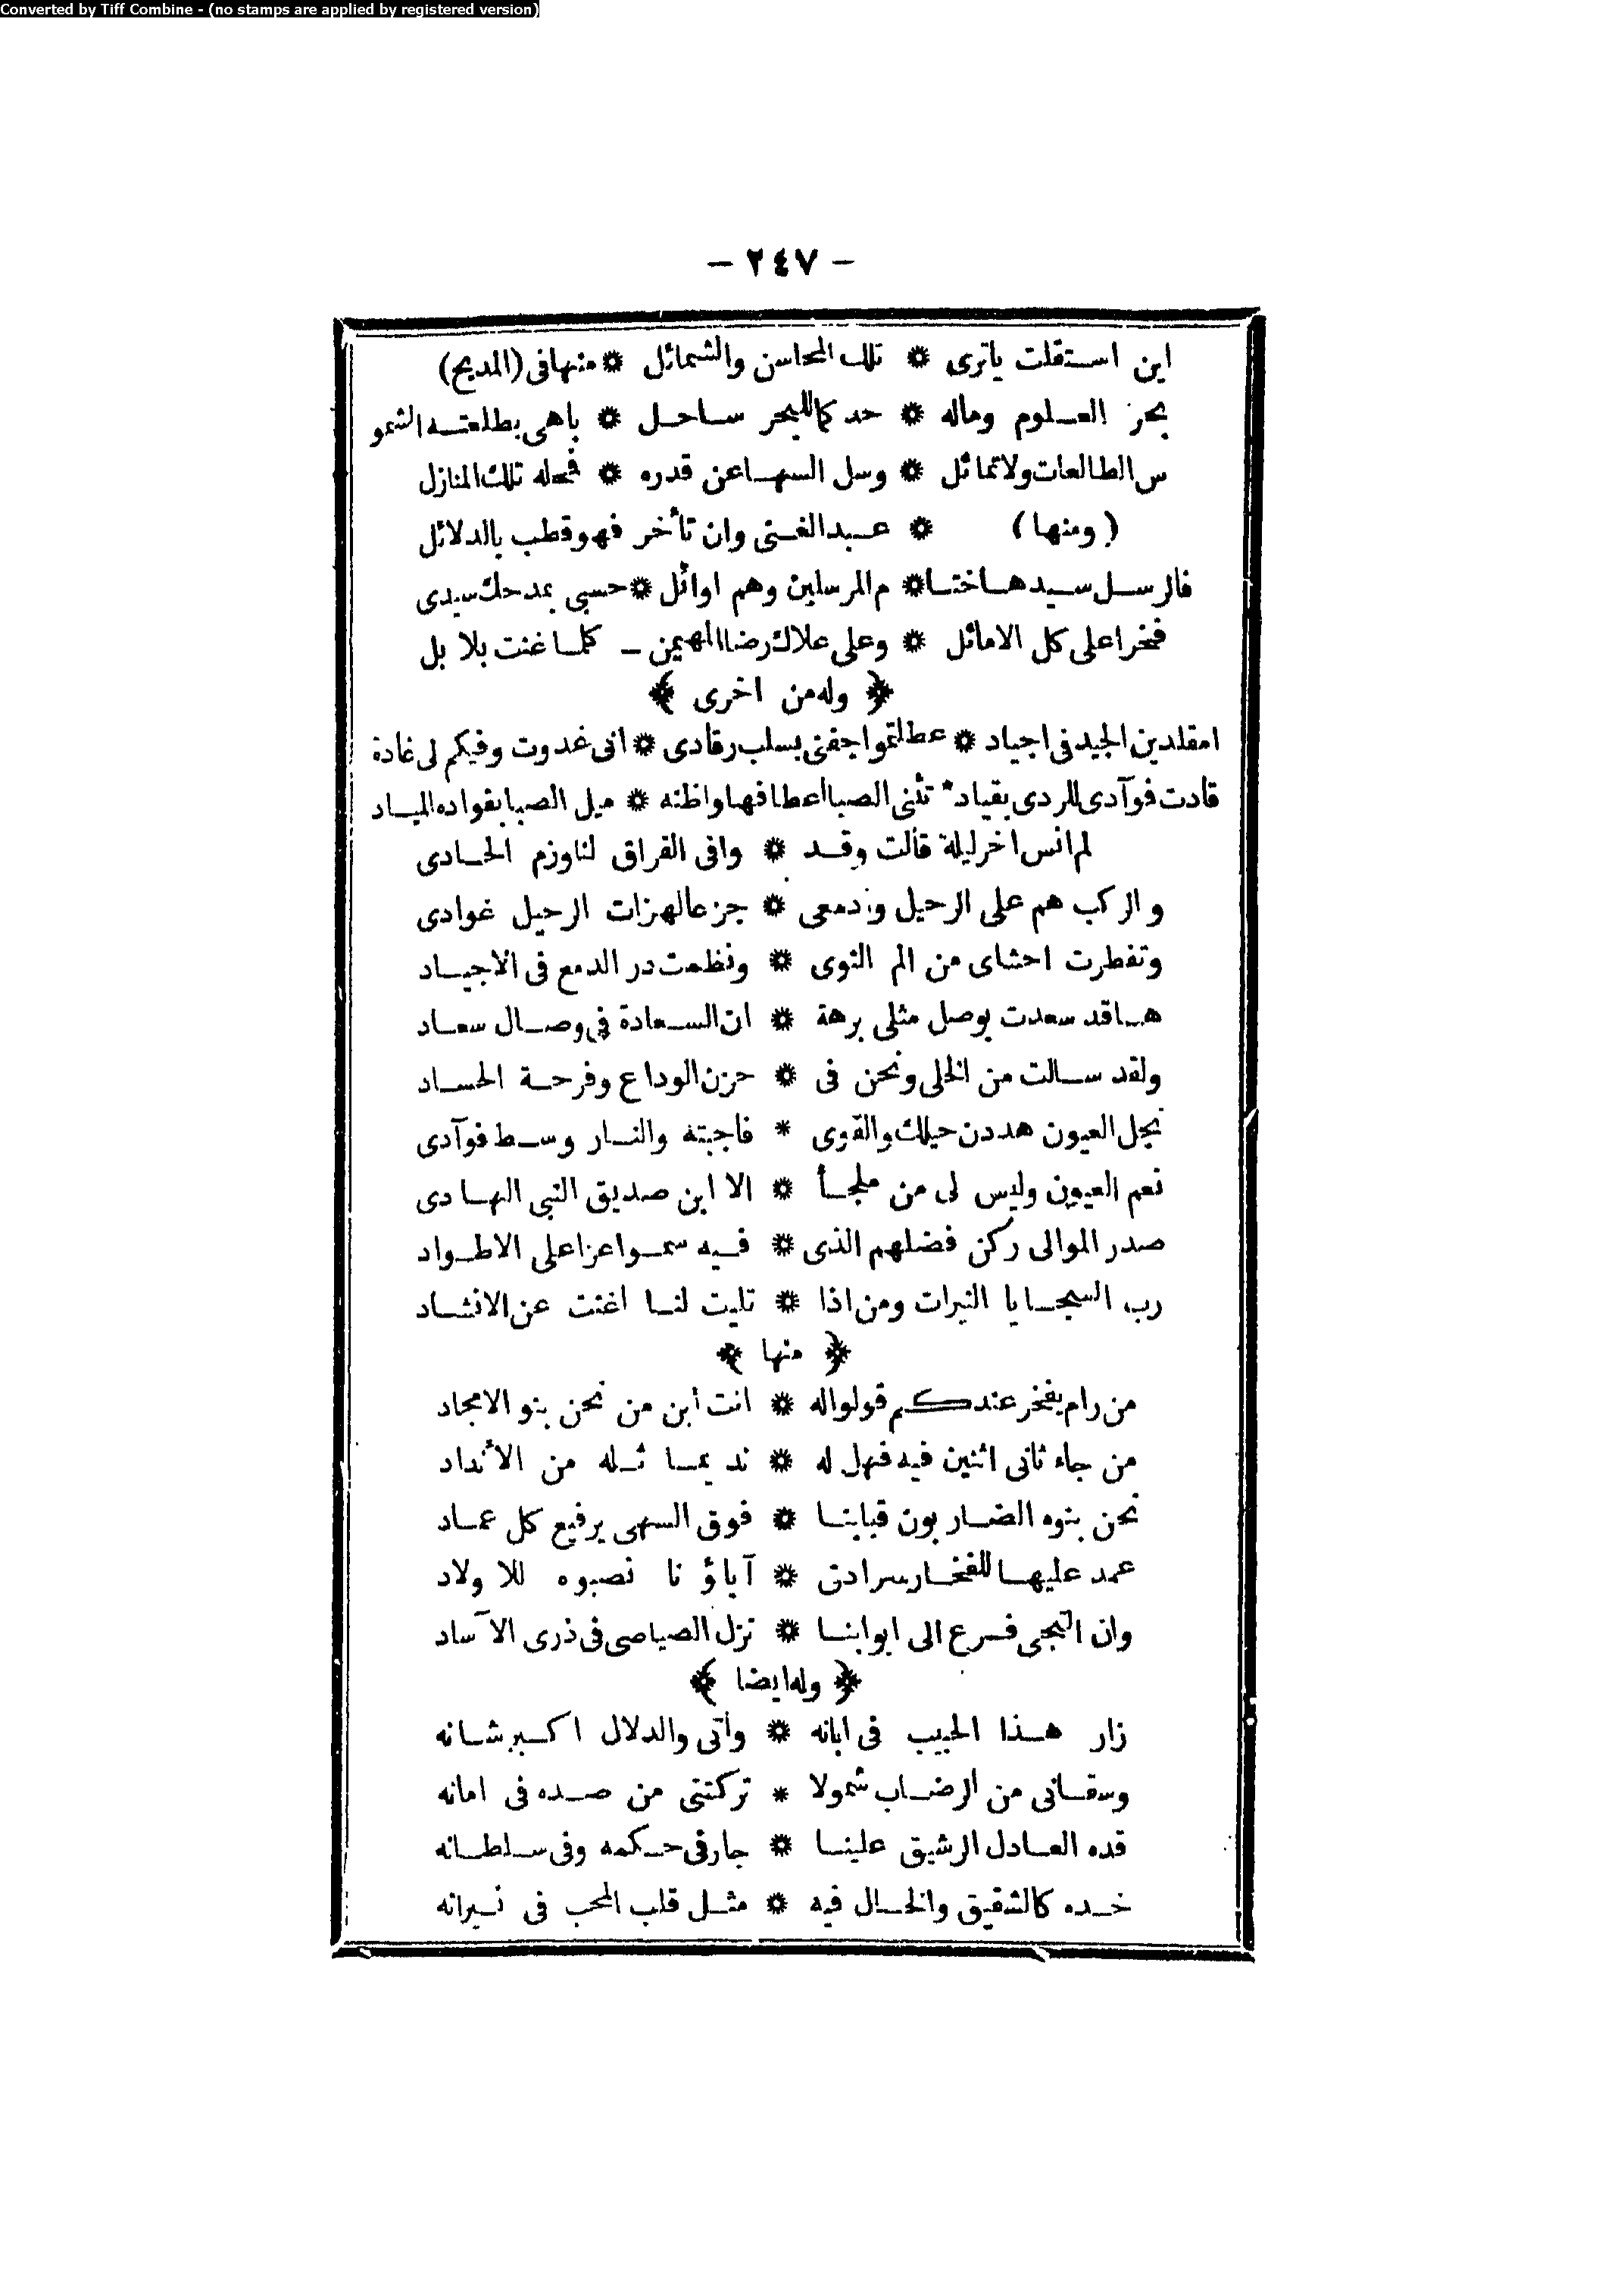 Converted by Tiff Combine - (no stamps are applied by registered version)
– ٢٤٧ –
اين استقلت ياترى * تلك المحاسن والشمائل * منها فى (المديح)
بحر العلوم وماله * حد كما للبحر ساحل * باهى بطلعته الشمو
س الطالعات ولا تماثل * وسل السها عن قدره * فمحله تلك المنازل
(ومنها) * عبد الغنى وان تأخر فهو قطب بالدلائل
فالرسل سيدها ختا * م المرسلين وهم اوائل * حسبى بمدحك سيدى
فخرا على كل الاماثل * وعلى علاك رضا المهيمن – كلما غنت بلا بل
﴿ وله من اخرى ﴾
امقلدين الجيد فى اجياد * عطلتموا جفنى بسلب رقادى * انى غدوت وفيكم لى غادة
قادت فوآدى للردى بقياد * تثنى الصبا اعطافها واظنه * ميل الصبا بقواده المياد
لم انس اخر ليلة قالت وقد * وافى الفراق لنا وزم الحادى
والركب هم على الرحيل وادمعى * جزعا لهزات الرحيل غوادى
وتفطرت احشاى من الم النوى * ونظمت در الدمع فى الاجياد
ها قد سعدت بوصل مثلى برهة * ان السعادة فى وصال سعاد
ولقد سالت من الخلى ونحن فى * حزن الوداع وفرحة الحساد
نجل العيون هددن حيلك والقوى * فاجبته والنار وسط فوآدى
نعم العيون وليس لى من ملجأ * الا ابن صديق النبى الهادى
صدر الموالى ركن فضلهم الذى * فيه سموا عزا على الاطواد
رب السجايا النيرات ومن اذا * تليت لنا اغنت عن الانشاد
﴿ منها ﴾
من رام يفخر عندكم قولوا له * انت ابن من نحن بنو الامجاد
من جاء ثانى اثنين فيه فهل له * ند يما ثله من الأنداد
نحن بنوه الضاربون قبابنا * فوق السهى يرفيع كل عماد
عمد عليها للفخار سرادق * آباؤنا نصبوه للاولاد
وان التجى فرع الى ابوابنا * نزل الصياصى فى ذرى الآساد
﴿ وله ايضا ﴾
زار هذا الحبيب فى ابانه * وأتى والدلال اكبر شانه
وسقانى من الرضاب شمولا * تركتنى من صده فى امانه
قده العادل الرشيق علينا * جار فى حكمه وفى سلطانه
خده كالشقيق والخال فيه * مثل قلب المحب فى نيرانه